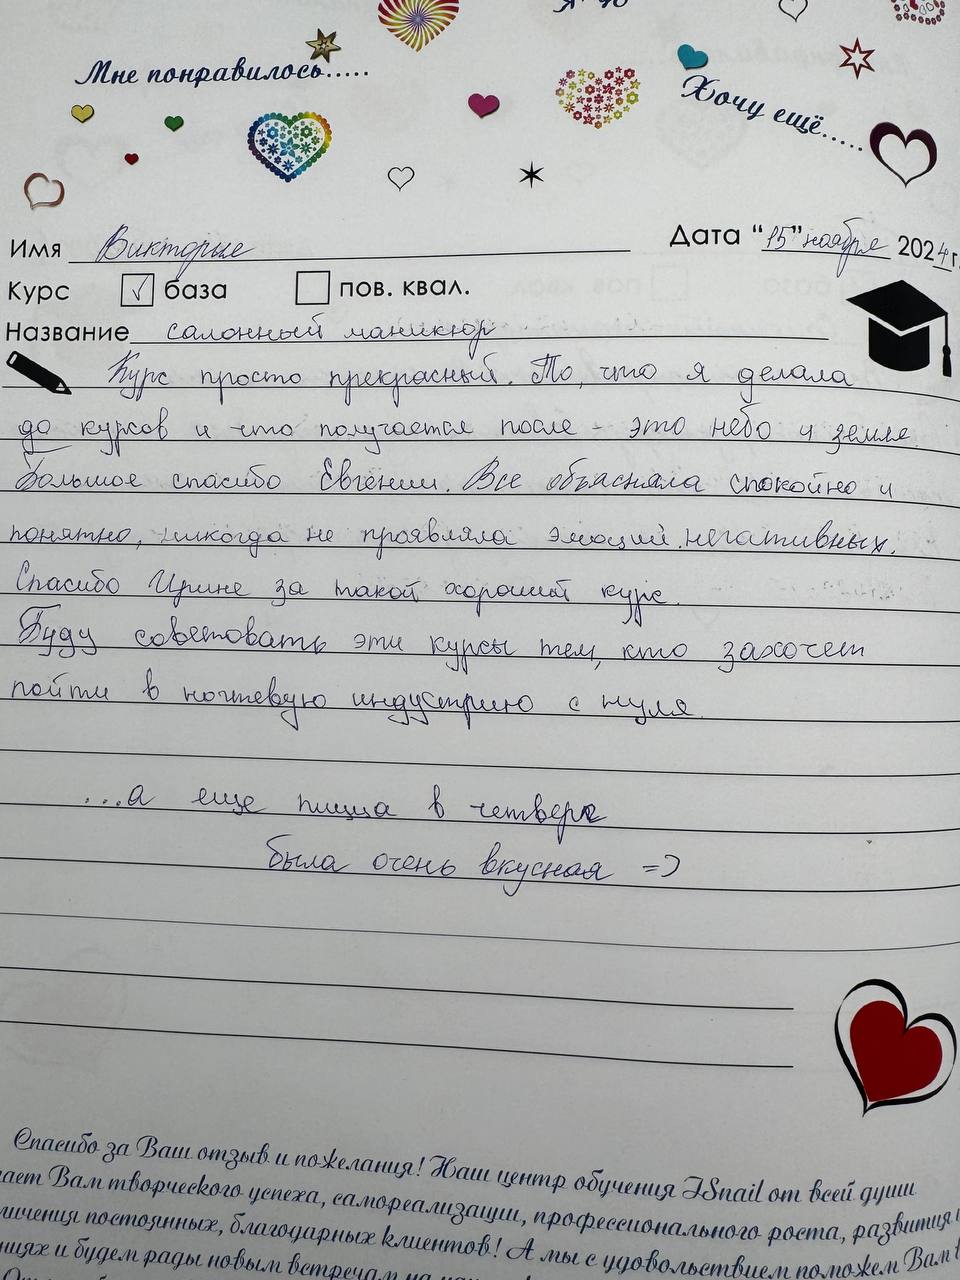 Мне понравилось.....
Хочу ещё.....
Имя Виктория
Дата “15” ноября 2024 г.
Курс ✓ база пов. квал.
Название салонный маникюр
Курс просто прекрасный. То, что я делала
до курсов и что получается после - это небо и земля
Большое спасибо Евгении. Все объясняла спокойно и
понятно, никогда не проявляла эмоций негативных.
Спасибо Ирине за такой хороший курс.
Буду советовать эти курсы тем, кто захочет
пойти в ногтевую индустрию с нуля.
...а еще пицца в четверг
была очень вкусная =)
Спасибо за Ваш отзыв и пожелания! Наш центр обучения JSnail от всей души
Вам творческого успеха, самореализации, профессионального роста, развития
постоянных, благодарных клиентов! А мы с удовольствием поможем Вам
и будем рады новым встречам